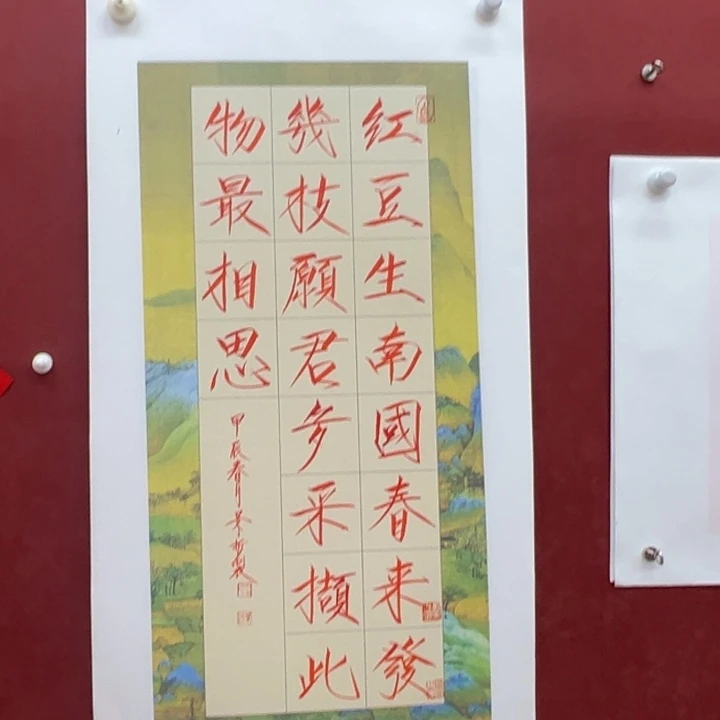 红豆生南國春来發
幾枝願君多采擷此
物最相思
甲辰春月